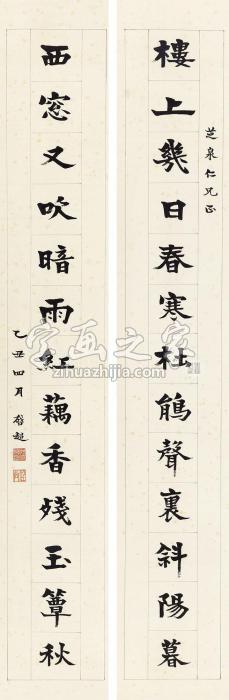 芝泉仁兄正
樓上幾日春寒杜鵑聲裏斜陽暮
西窓又吹暗雨紅藕香殘玉簟秋
乙丑四月 啓超
字画之家
zihuazhijia.com